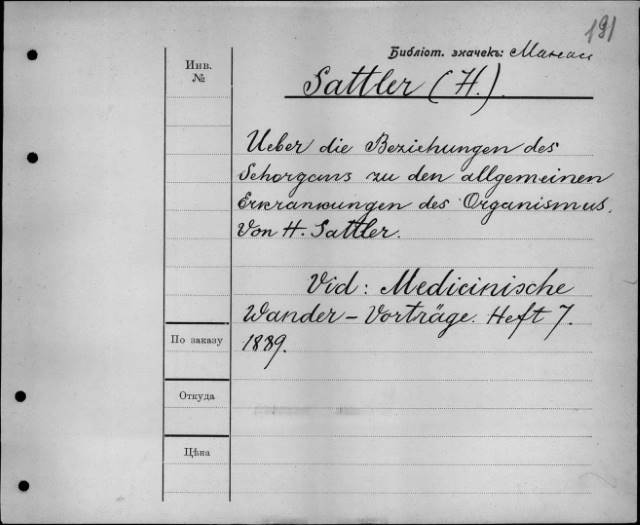 191
Библіот. значекъ:
Инв.
№
Sattler (H.).
Ueber die Beziehungen des
Sehorgans zu den allgemeinen
Erkrankungen des Organismus.
Von H. Sattler.
Vid: Medicinische
Wander-Vorträge. Heft 7.
1889.
По заказу
Откуда
Цѣна